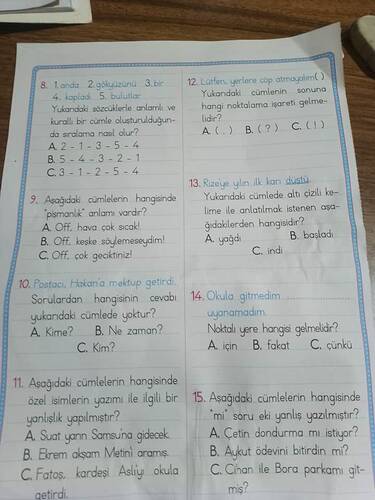 8. 1. anda 2. gökyüzünü 3. bir
4. kapladı 5. bulutlar
Yukarıdaki sözcüklerle anlamlı ve
kurallı bir cümle oluşturulduğun-
da sıralama nasıl olur?
A. 2 - 1 - 3 - 5 - 4
B. 5 - 4 - 3 - 2 - 1
C. 3 - 1 - 2 - 5 - 4
9. Aşağıdaki cümlelerin hangisinde
"pişmanlık" anlamı vardır?
A. Off, hava çok sıcak!
B. Off, keşke söylemeseydim!
C. Off, çok geciktiniz!
10. Postacı, Hakan'a mektup getirdi.
Sorulardan hangisinin cevabı
yukarıdaki cümlede yoktur?
A. Kime? B. Ne zaman?
C. Kim?
11. Aşağıdaki cümlelerin hangisinde
özel isimlerin yazımı ile ilgili bir
yanlışlık yapılmıştır?
A. Suat yarın Samsun'a gidecek.
B. Ekrem akşam Metin'i aramış.
C. Fatoş, kardeşi Aslı'yı okula
getirdi.
12. Lütfen, yerlere çöp atmayalım( )
Yukarıdaki cümlenin sonuna
hangi noktalama işareti gelme-
lidir?
A. ( . ) B. ( ? ) C. ( ! )
13. Rize'ye yılın ilk karı düştü.
Yukarıdaki cümlede altı çizili ke-
lime ile anlatılmak istenen aşa-
ğıdakilerden hangisidir?
A. yağdı B. başladı
C. indi
14. Okula gitmedim ....................
uyanamadım.
Noktalı yere hangisi gelmelidir?
A. için B. fakat C. çünkü
15. Aşağıdaki cümlelerin hangisinde
"mi" soru eki yanlış yazılmıştır?
A. Çetin dondurma mı istiyor?
B. Aykut ödevini bitirdin mi?
C. Cihan ile Bora parkamı git-
miş?